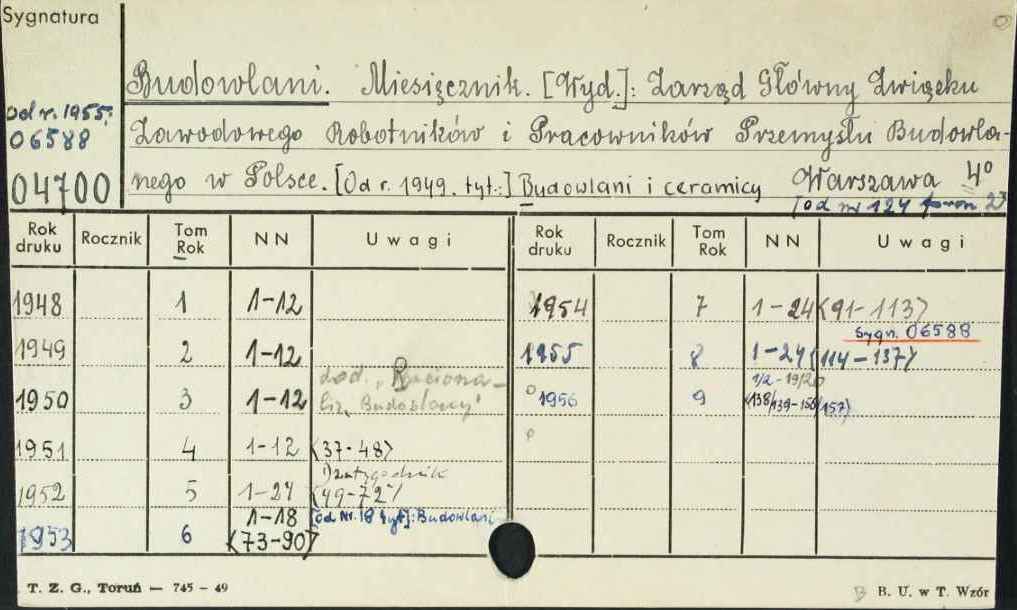 Sygnatura
Budowlani. Miesięcznik. [Wyd.]: Zarząd Główny Związku
Od r. 1955:
06588
Zawodowego Robotników i Pracowników Przemysłu Budowla-
04700
nego w Polsce. [Od r. 1949. tyt.:] Budowlani i ceramicy Warszawa 4º
[od nr 124 2º
Rok druku Rocznik Tom Rok NN Uwagi Rok druku Rocznik Tom Rok NN Uwagi
1948 1 1-12 1954 7 1-24 <91-113>
Sygn. 06588
1949 2 1-12 1955 8 1-24 <114-137>
dod. „Racjona-
1/2-19/20
1950 3 1-12 liz. Budowlany" 1956 9 <138/139-156/157>
1951 4 1-12 <37-48>
1952 5 1-24 <49-72>
1-18 [od Nr. 18 tyt]: Budowlani
1953 6 <73-90>
T. Z. G., Toruń — 745 – 49 B. U. w T. Wzór